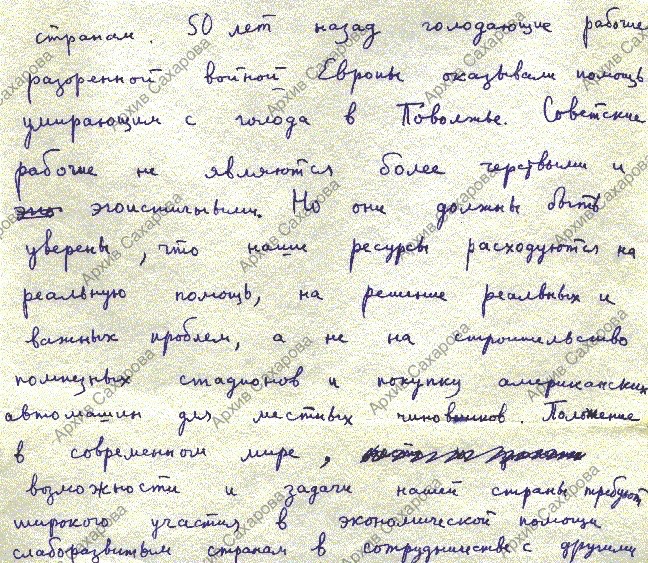 странам. 50 лет назад голодающие рабочие
разоренной войной Европы оказывали помощь
умирающим с голода в Поволжье. Советские
рабочие не являются более черствыми и
эго эгоистичными. Но они должны быть
уверены, что наши ресурсы расходуются на
реальную помощь, на решение реальных и
важных проблем, а не на строительство
помпезных стадионов и покупку американских
автомашин для местных чиновников. Положение
в современном мире,
возможности и задачи нашей страны требуют
широкого участия в экономической помощи
слаборазвитым странам в сотрудничестве с другими
Архив Сахарова